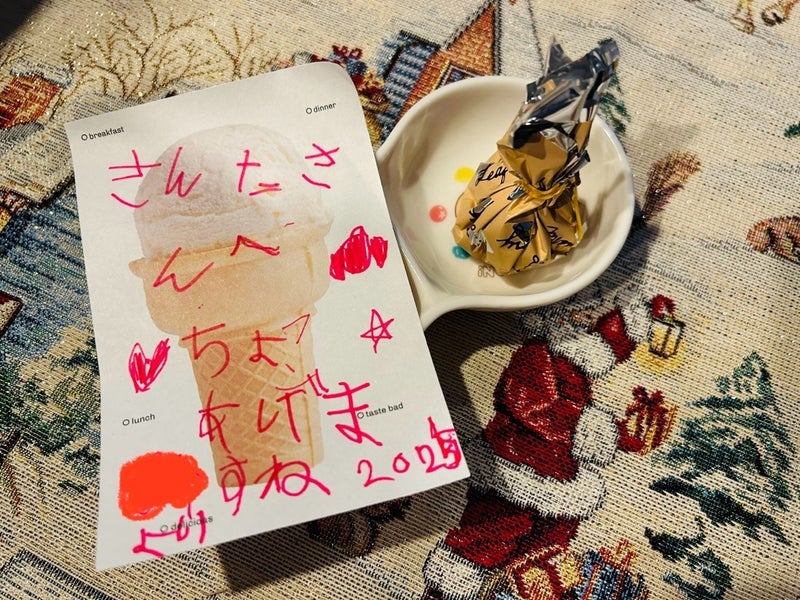 O breakfast
O dinner
さんたさ
んへ
ちょこ
O lunch
あげま
O taste bad
すね 2025
O delicious
より